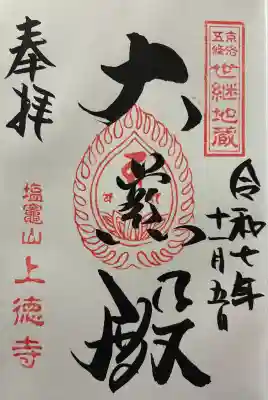 京洛五條 世継地蔵
令和七年
十一月五日
大悲殿
奉拝
塩竈山 上徳寺